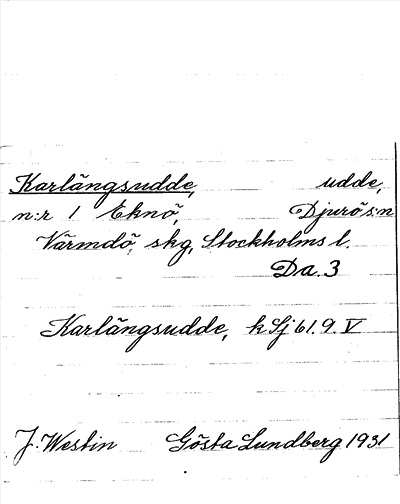 Karlängsudde, udde,
n:r 1 Eknö, Djurö s:n
Värmdö, skg, Stockholms l.
Da. 3
Karlängsudde, k Sj 61.9. V
J. Westin Gösta Lundberg 1931